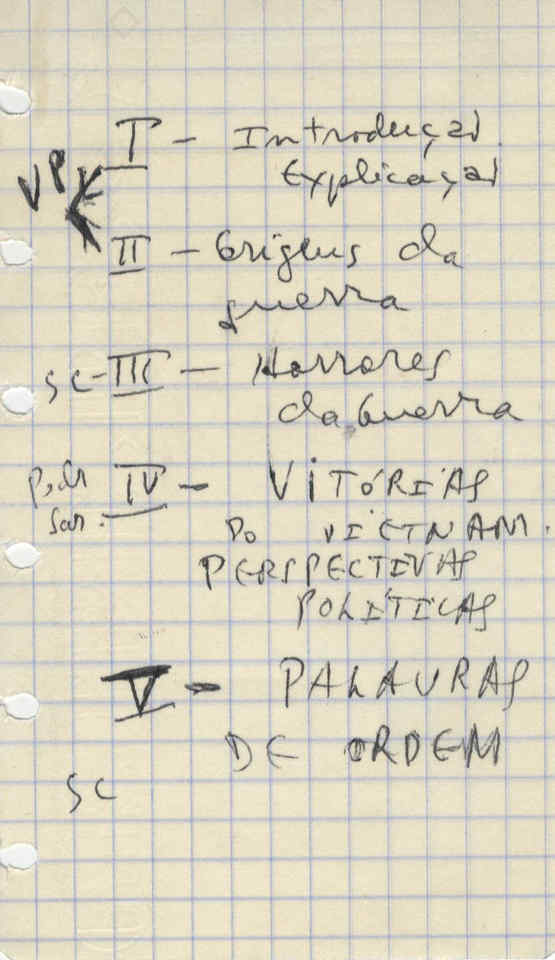 I - Introduçaõ
Explicaçaõ
VP
II - Origens da
guerra
SC - III - Horrores
da Guerra
IV - VITÓRIAS
DO VIETNAM.
PERSPECTIVAS
POLÍTICAS
V - PALAVRAS
DE ORDEM
SC